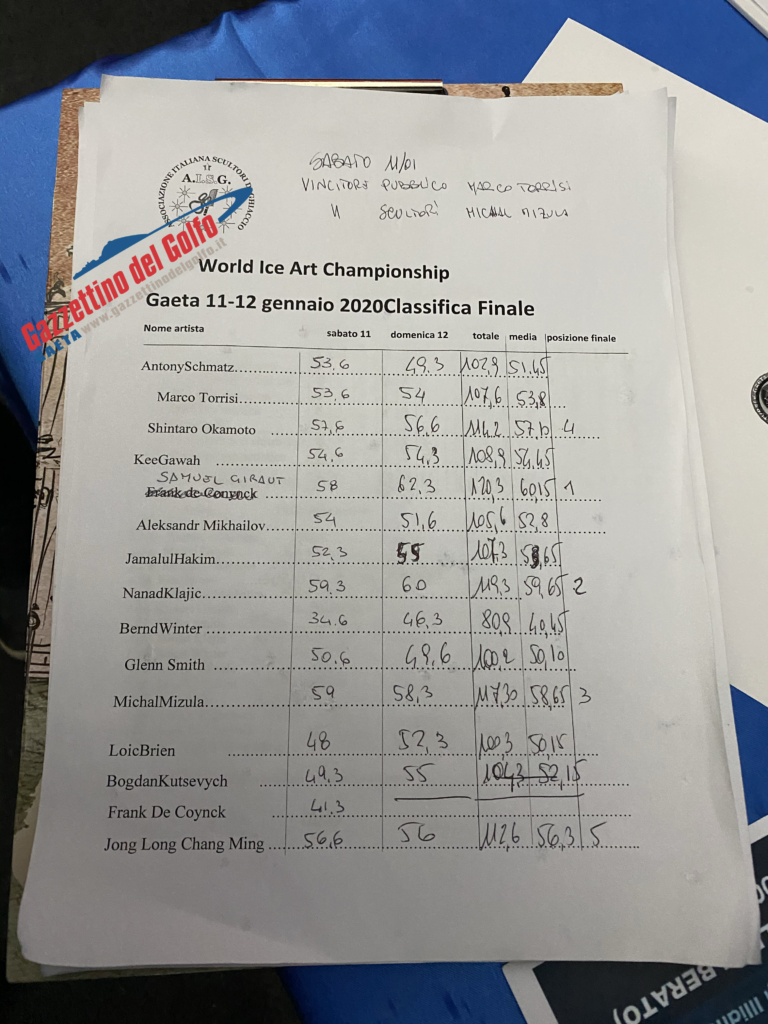 ASSOCIAZIONE ITALIANA SCULTORI DI GHIACCIO
A.I.S.G.
SABATO 11/01
VINCITORE PUBBLICO MARCO TORRISI
" SCULTORI MICHAL MIZULA
Gazzettino del Golfo
GAETA www.gazzettinodelgolfo.it
World Ice Art Championship
Gaeta 11-12 gennaio 2020Classifica Finale
Nome artista sabato 11 domenica 12 totale media posizione finale
AntonySchmatz 53,6 49,3 102,9 51,45
Marco Torrisi 53,6 54 107,6 53,8
Shintaro Okamoto 57,6 56,6 114,2 57,10 4
KeeGawah 54,6 54,3 108,9 54,45
SAMUEL GIRAUT
Frank de Conynck 58 62,3 120,3 60,15 1
Aleksandr Mikhailov 54 51,6 105,6 52,8
JamalulHakim 52,3 55 107,3 53,65
NanadKlajic 59,3 60 119,3 59,65 2
BerndWinter 34,6 46,3 80,9 40,45
Glenn Smith 50,6 49,6 100,2 50,10
MichalMizula 59 58,3 117,30 58,65 3
LoicBrien 48 52,3 100,3 50,15
BogdanKutsevych 49,3 55 104,3 52,15
Frank De Coynck 41,3
Jong Long Chang Ming 56,6 56 112,6 56,3 5
BERATO)